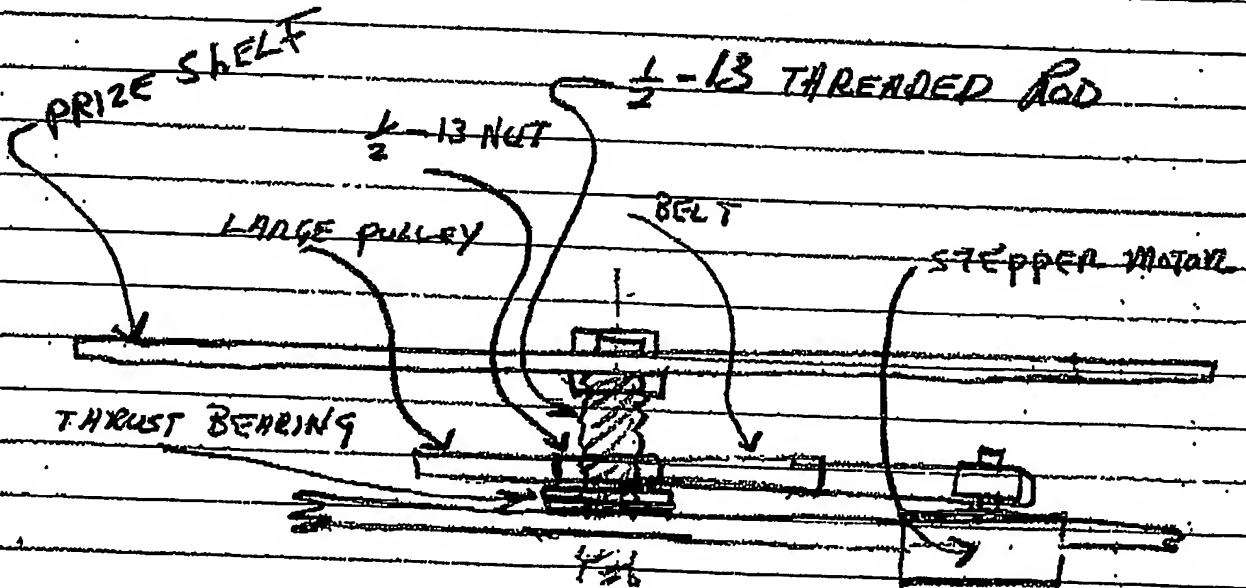 PRIZE SHELF
1/2-13 THREADED ROD
1/2-13 NUT
BELT
LARGE PULLEY
STEPPER MOTOR
THRUST BEARING